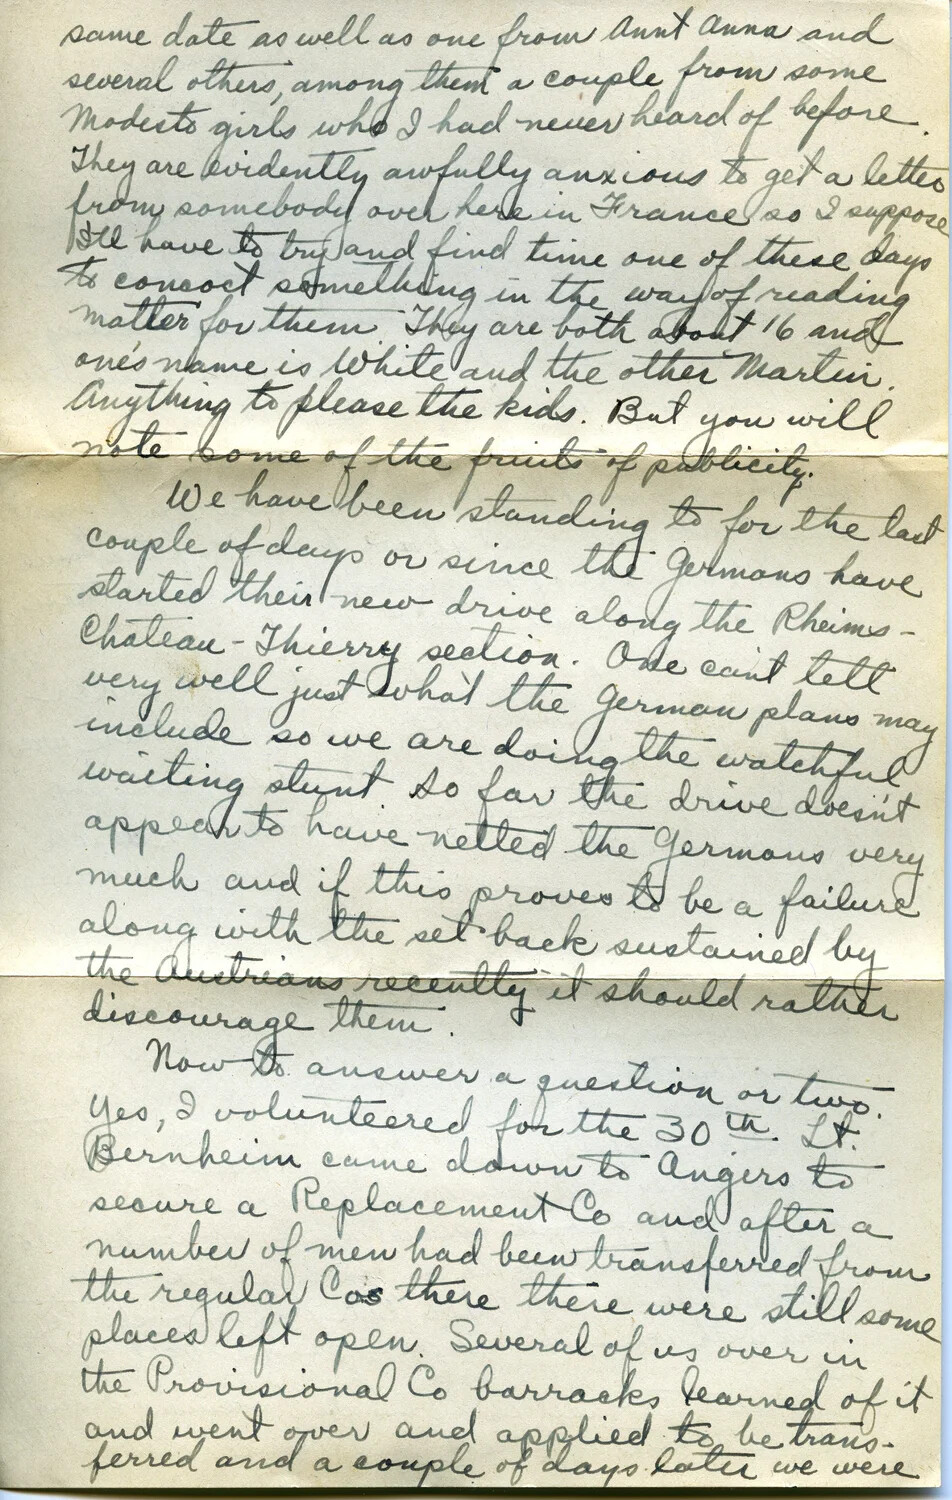 same date as well as one from Aunt Anna and
several others, among them a couple from some
Modesto girls who I had never heard of before.
They are evidently awfully anxious to get a letter
from somebody over here in France so I suppose
I'll have to try and find time one of these days
to concoct something in the way of reading
matter for them. They are both about 16 and
one's name is White and the other Martin.
Anything to please the kids. But you will
note some of the fruits of publicity.
We have been standing to for the last
couple of days or since the Germans have
started their new drive along the Rheims-
Chateau-Thierry section. One can't tell
very well just what the German plans may
include so we are doing the watchful
waiting stunt. So far the drive doesn't
appear to have netted the Germans very
much and if this proves to be a failure
along with the set back sustained by
the Austrians recently it should rather
discourage them.
Now to answer a question or two.
Yes, I volunteered for the 30th. Lt.
Bernheim came down to Angers to
secure a Replacement Co and after a
number of men had been transferred from
the regular Cos there there were still some
places left open. Several of us over in
the Provisional Co barracks learned of it
and went over and applied to be trans-
ferred and a couple of days later we were